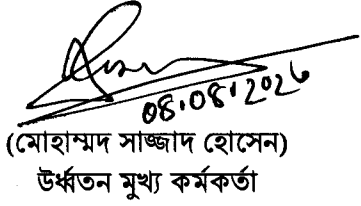 08.08.2026
(মোহাম্মদ সাজ্জাদ হোসেন)
উর্ধ্বতন মুখ্য কর্মকর্তা